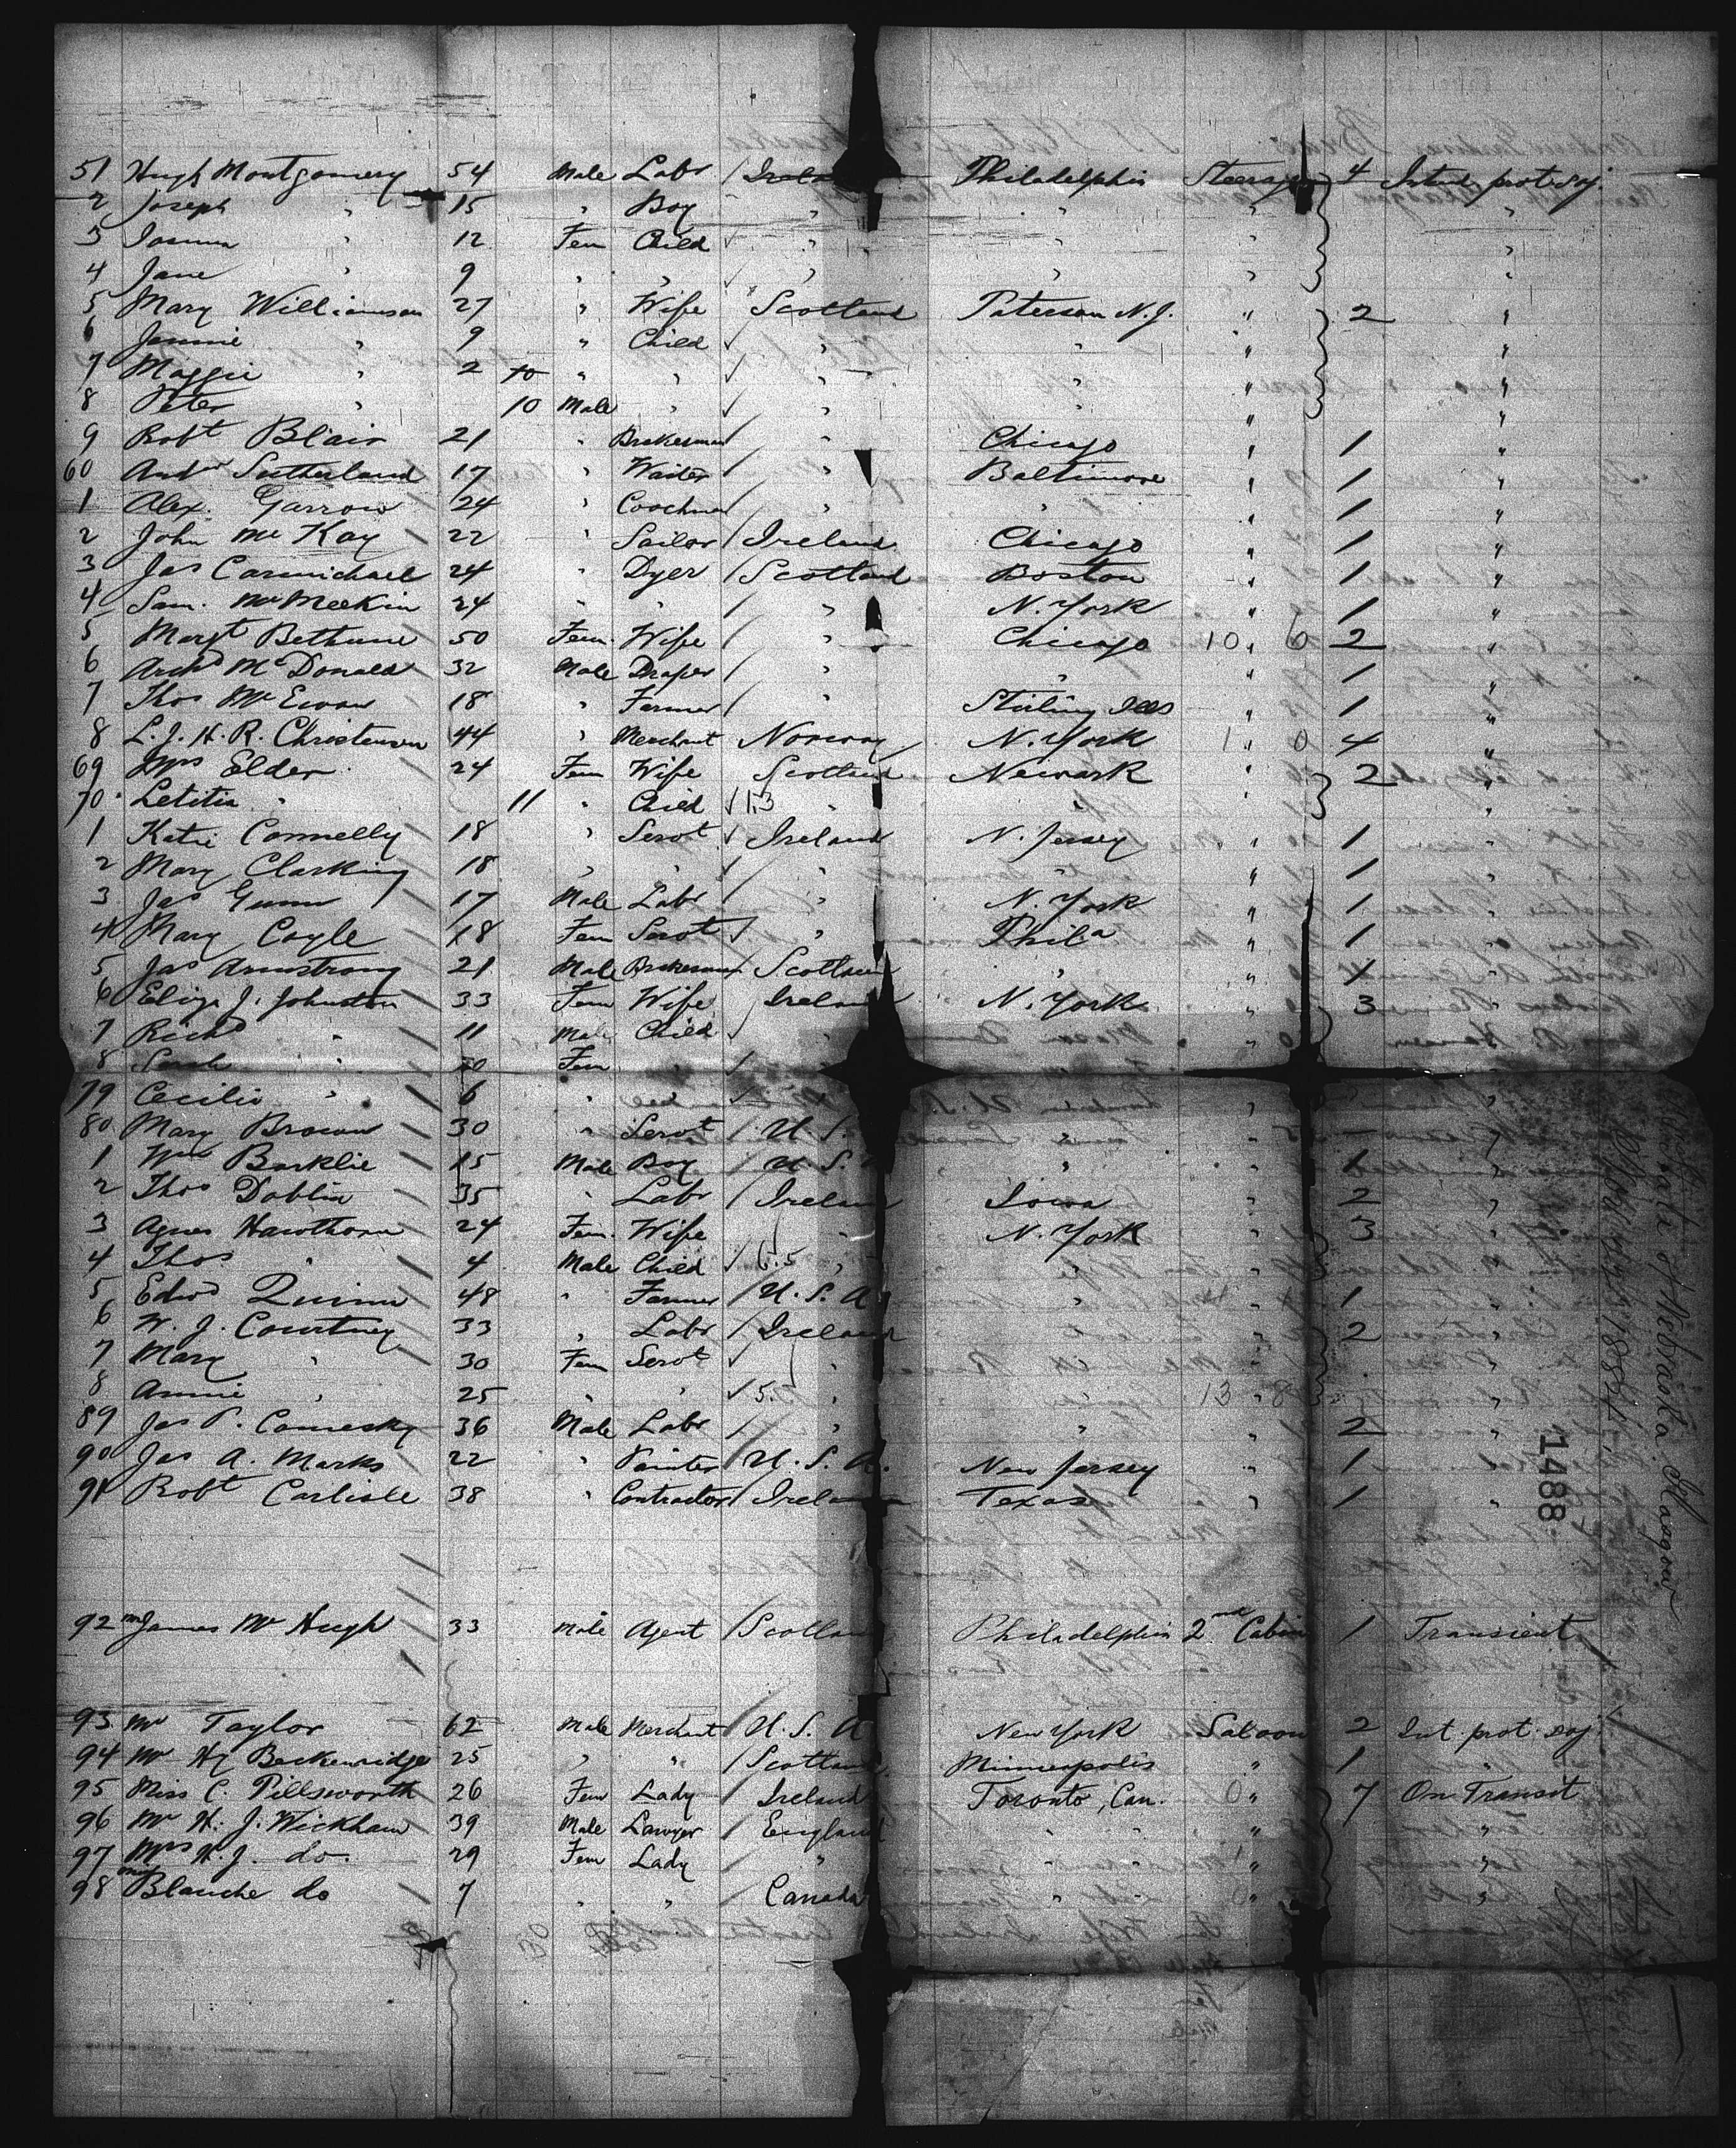 51 Hugh Montgomery 54 Male Labr / Ireland Philadelphia Steerage 4 Intend. prot. soj.
2 Joseph " 15 " Boy " " " "
3 " 12 Fem Child ✓ " " " "
4 Jane " 9 " " ✓ " " " "
5 Mary Williamson 27 " Wife " Scotland Paterson N.J. " 2 "
6 Jennie " 9 " Child ✓ " " " "
7 Maggie " 2 " " ✓ " " " "
8 Peter " 10 Male " ✓ " " " "
9 Robt Blair 21 " Brakesman / " Chicago " 1 "
60 Andw Sutherland 17 " Waiter / " Baltimore " 1 "
1 Alex. Garrow 24 " Coachman / " " " 1 "
2 John McKay 22 " Sailor / Ireland Chicago " 1 "
3 Jas Carmichael 24 " Dyer / Scotland Boston " 1 "
4 Sam. McMeekin 24 " " / " N. York " 1 "
5 Margt Bethune 50 Fem. Wife / " Chicago 10 " 6 2 "
6 Archd McDonald 32 Male Draper / " " " 1 "
7 Thos McEwan 18 " Farmer / " Stirling Ills " 1 "
8 L. J. H. R. Christensen 44 " Merchant Norway / N. York 1 " 0 4 "
69 Mrs Elder 24 Fem Wife Scotland Newark " 2 "
70 Letitia " 11 " Child ✓ 13 " " " "
1 Katie Connelly 18 " Servt ✓ Ireland N. Jersey " 1 "
2 Mary Clarking 18 " " ✓ " " " 1 "
3 Jas Gunn 17 Male Labr / " N. York " 1 "
4 Mary Coyle 18 Fem Servt ✓ " Phila " 1 "
5 Jas Armstrong 21 Male Brakesman / Scotland " " 1 "
6 Eliza J. Johnston 33 Fem Wife / Ireland N. York " 3 "
7 Richd " 11 Male Child ✓ "
8 Sarah " 10 Fem " /
79 Cecilia " 6 " " / "
80 Mary Brown 30 " Servt / U. S. " "
1 Wm Barklie 15 Male Boy / U. S. " " 1 "
2 Thos Doblin 35 " Labr / Ireland Iowa " 2 "
3 Agnes Hawthorn 24 Fem. Wife / " N. York " 3 "
4 Thos " 4 Male Child ✓ 6.5 " " " "
5 Edwd Quinn 48 " Farmer / U. S. A. " " 1 "
6 W. J. Courtney 33 " Labr / Ireland " " 2 "
7 Mary " 30 Fem Servt ✓ " " " "
8 Annie " 25 " " ✓ 5. " " 13 " 8 "
89 Jas P. 36 Male Labr / " " " 2 "
90 Jas A. Marks 22 " Painter / U. S. A. New Jersey " 1 "
91 Robt Carlisle 38 " Contractor / Ireland Texas " 1 "
92 James McHugh 33 Male Agent / Scotland Philadelphia 2nd Cabin 1 Transient
93 Mr Taylor 62 Male Merchant / U. S. A New York Saloon 2 Int. prot. soj.
94 Mr Hy Beckenridge 25 " " / Scotland Minneapolis " 1 "
95 Miss C. Pillsworth 26 Fem Lady / Ireland Toronto, Can. 0 " 7 On Transit
96 Mr H. J. Wickham 39 Male Lawyer / England " " " "
97 Mrs H. J. do. 29 Fem Lady / " " " " "
98 Blanche do 7 " " / Canada " " " "
State of Nebraska Glasgow
1884
1488